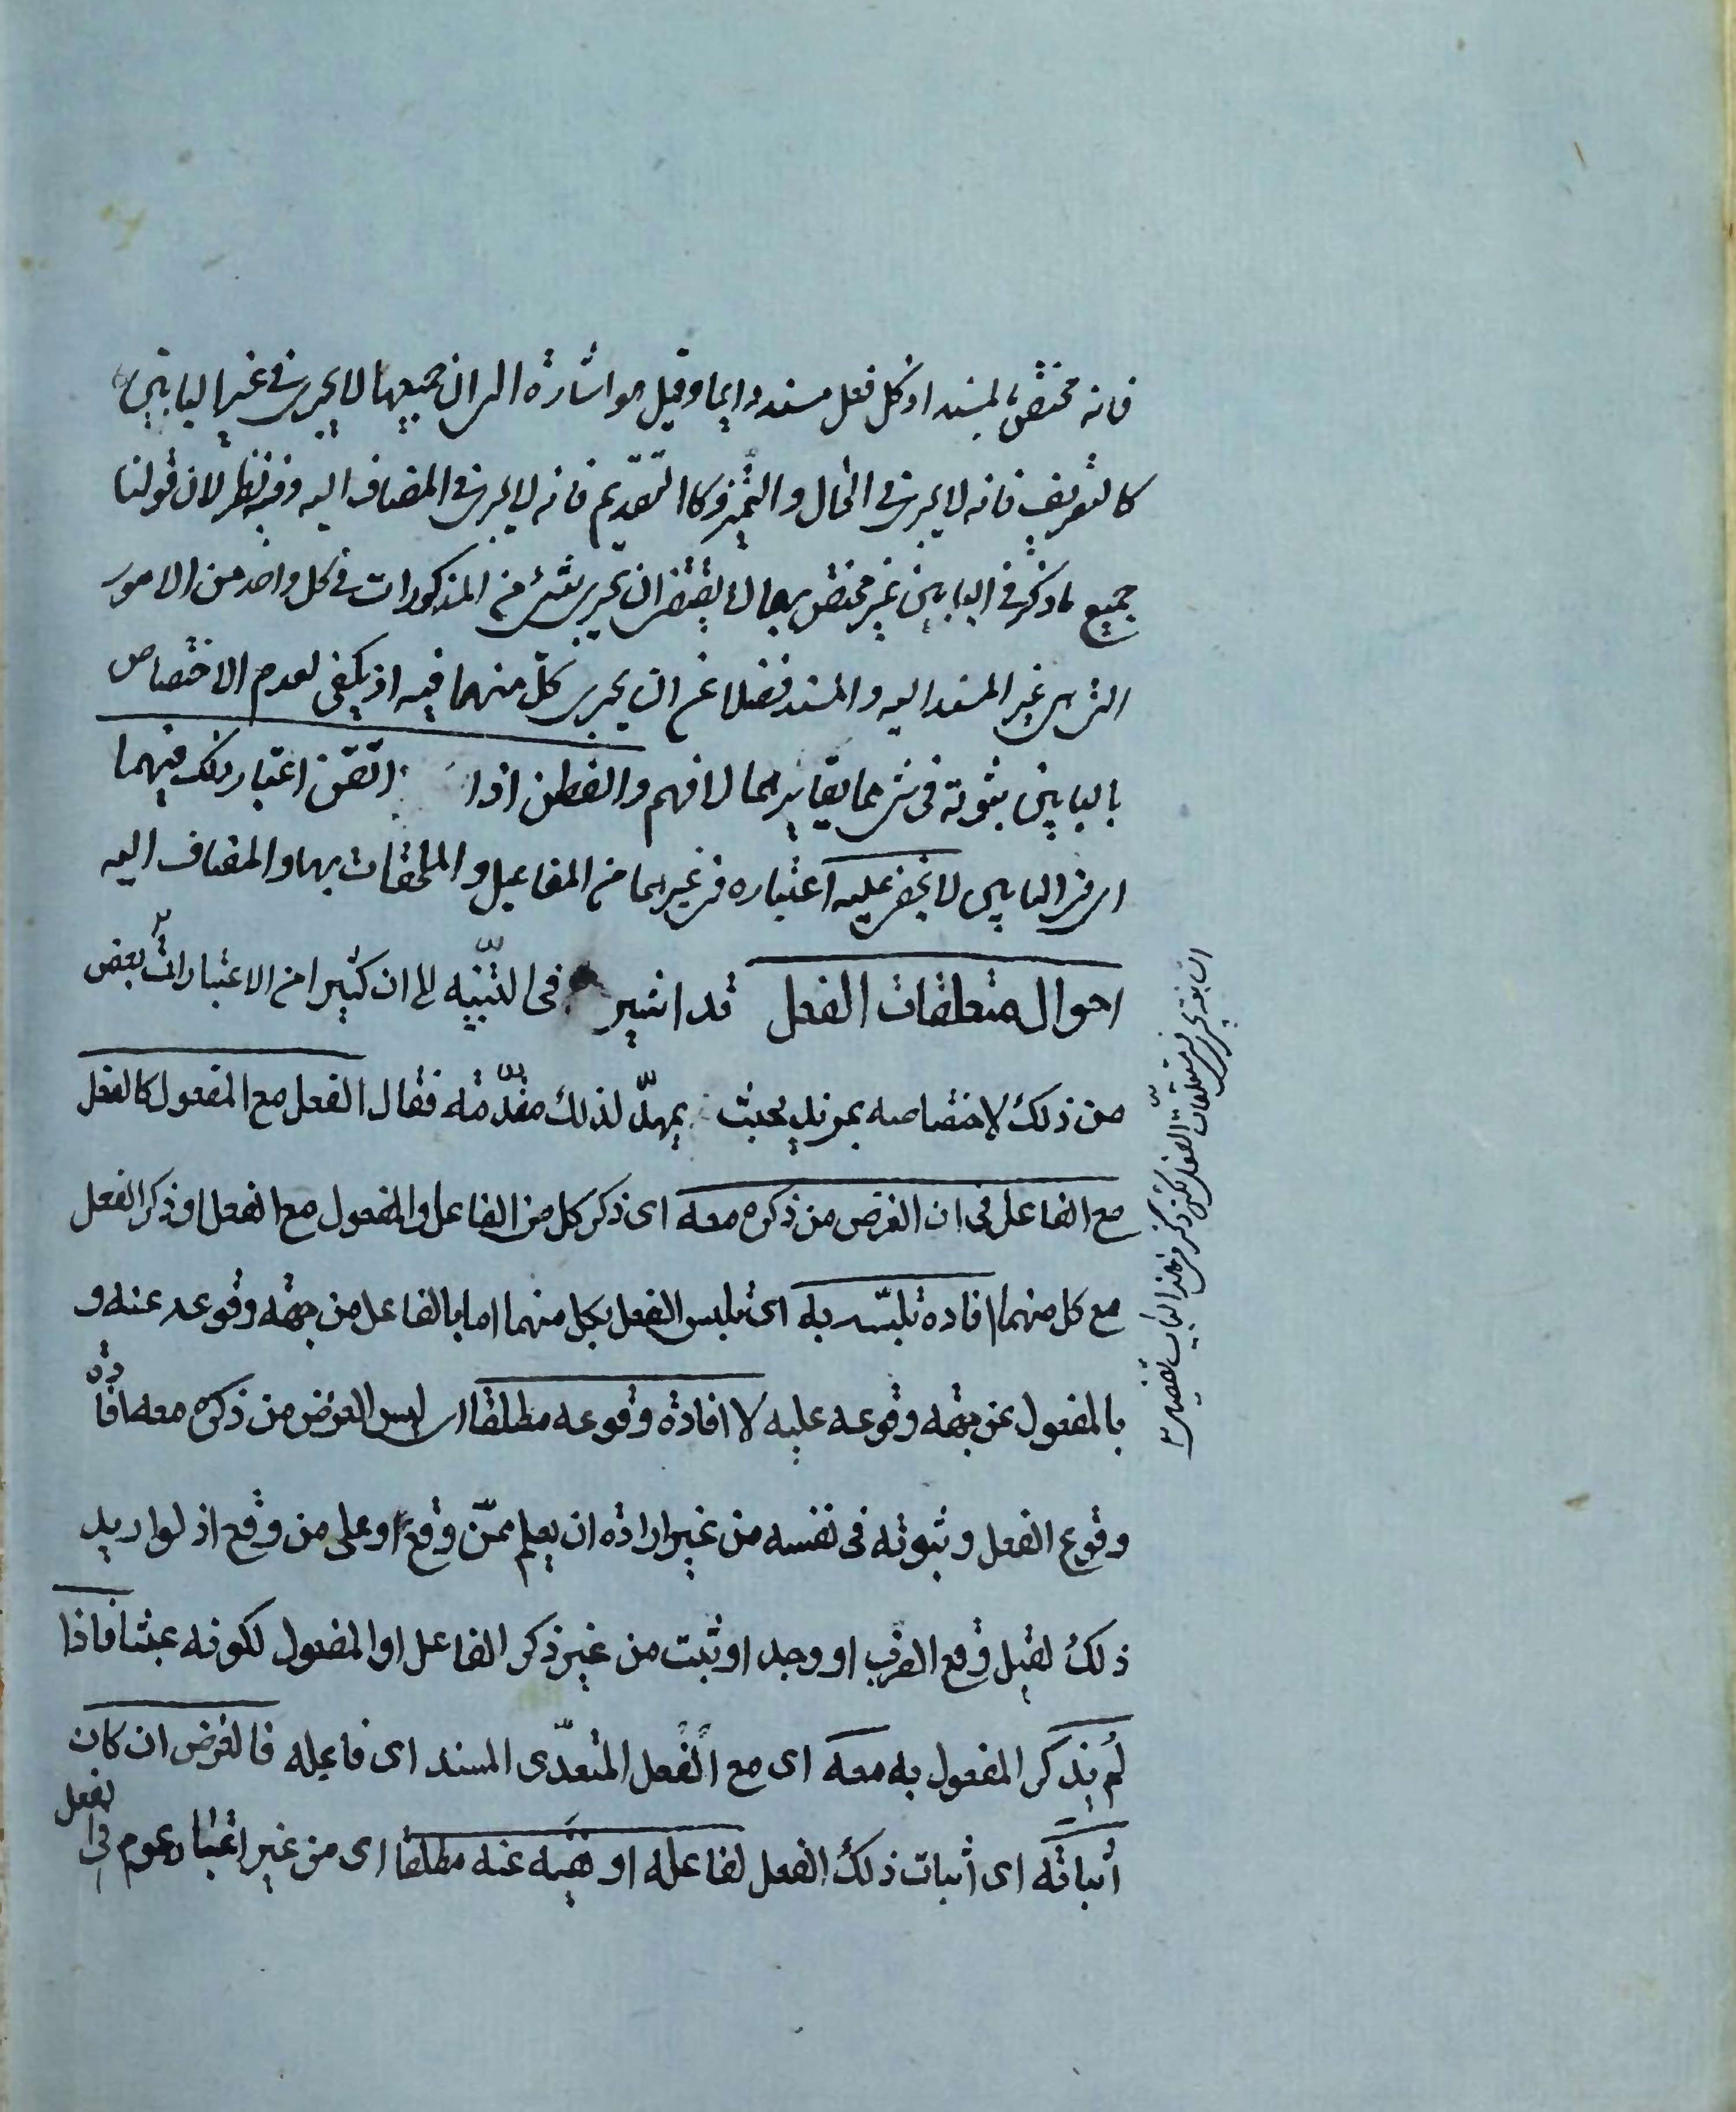 فانه مختص بالمسند اذ كل فعل مسند دايما وقيل هو اشارة الى ان جميعها لا يجرى فى غير البابين
كالتعريف فانه لا يجرى فى الحال والتميز وكالتقديم فانه لا يجرى فى المضاف اليه وفيه نظر لان قولنا
جميع ما ذكر فى البابين غير مختص بهما لا يقتضى ان يجرى شئ من المذكورات فى كل واحد من الامور
التى هى غير المسند اليه والمسند فضلا عن ان يجرى كلّ منهما فيه اذ يكفى لعدم الاختصاص
بالبابين ثبوته فى شئ مما يغايرهما فافهم والفطن اذا اتقن اعتبار ذلك فيهما
اى فى البابين لا يخفى عليه اعتباره فى غيرهما من المفاعيل والملحقات بها والمضاف اليه
احوال متعلقات الفعل قد اشير فى التنبيه الى ان كثيرا من الاعتبارات بعض
من ذلك لاختصاصه بمزيد بحث يمهدّ لذلك مقدّمة فقال الفعل مع المفعول كالفعل
مع الفاعل فى ان الغرض من ذكره معه اى ذكر كل من الفاعل والمفعول مع الفعل او ذكر الفعل
مع كل منهما افادة تلبّسه به اى تلبس الفعل بكل منهما اما بالفاعل من جهة وقوعه عنه و
بالمفعول عن جهة وقوعه عليه لا افادة وقوعه مطلقا اى ليس الغرض من ذكره معه افادة
وقوع الفعل وثبوته فى نفسه من غير ارادة ان يعلم ممّن وقع او على من وقع اذ لو اريد
ذلك لقيل وقع الضرب او وجد او ثبت من غير ذكر الفاعل او المفعول لكونه عبثا فاذا
لم يذكر المفعول به معه اى مع الفعل المتعدّى المسند اى فاعله فالغرض ان كان
اثباته اى اثبات ذلك الفعل لفاعله او نفيه عنه مطلقا اى من غير اعتبار عموم فى الفعل
السابقة يجرى فى متعلقات الفعل لكن ذكر فى هذا الباب تفصيل